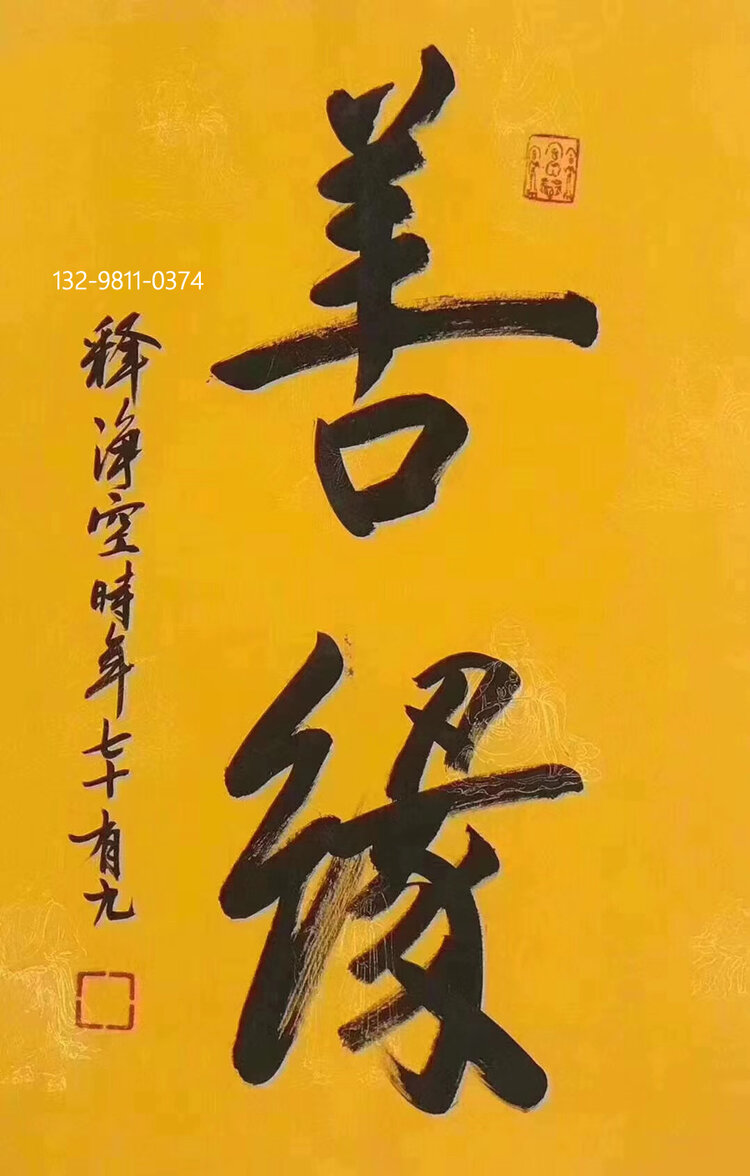 善缘
132-9811-0374
释净空時年七十有九